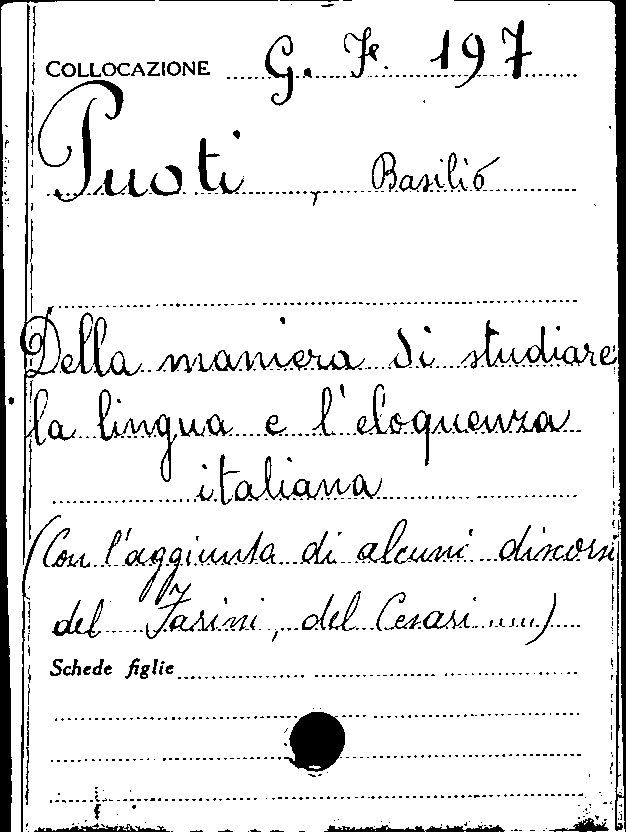 COLLOCAZIONE G. Fe. 197
Puoti, Basilio
Della maniera di studiare
la lingua e l'eloquenza
italiana
(Con l'aggiunta di alcuni discorsi
del Farini, del Cesari.....)
Schede figlie